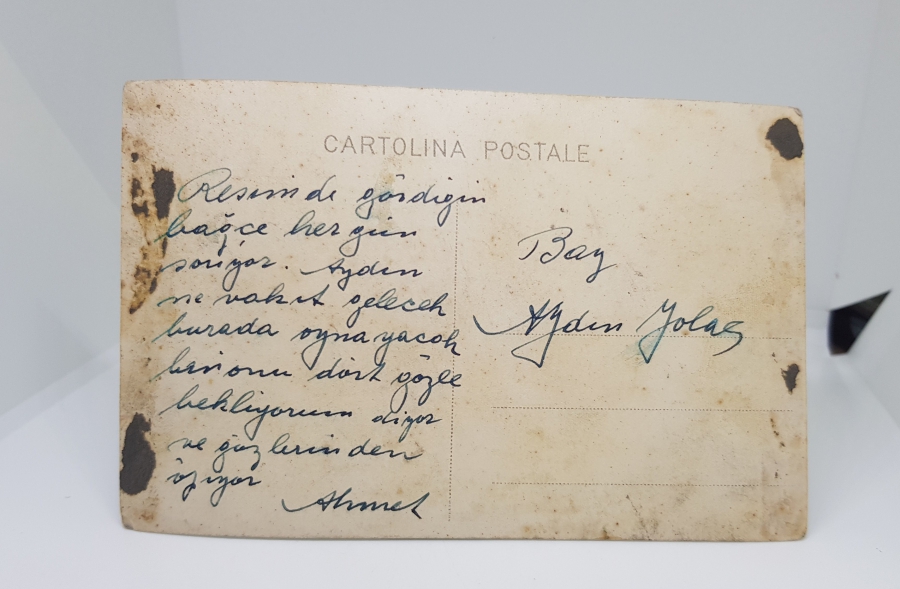 CARTOLINA POSTALE
Resimde gördigin
bağçe her gün
soriyor. Aydın
ne vakıt gelecek
burada oynayacak
ben onu dört gözle
bekliyorum diyor
ve gözlerinden
öpiyor
Ahmet
Bay
Aydın Yolaç